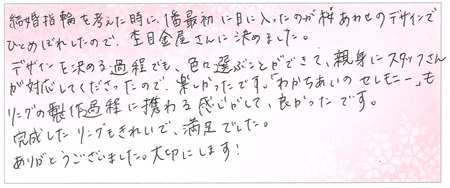 結婚指輪を考えた時に、1番最初に目に入ったのが桜あわせのデザインで
ひとめぼれしたので、杢目金屋さんに決めました。
デザインを決める過程でも、色々選ぶことができて、親身にスタッフさん
が対応してくださったので、楽しかったです。「わかちあいのセレモニー」も
リングの製作過程に携わる感じがして、良かったです。
完成したリングもきれいで、満足でした。
ありがとうございました。大切にします!